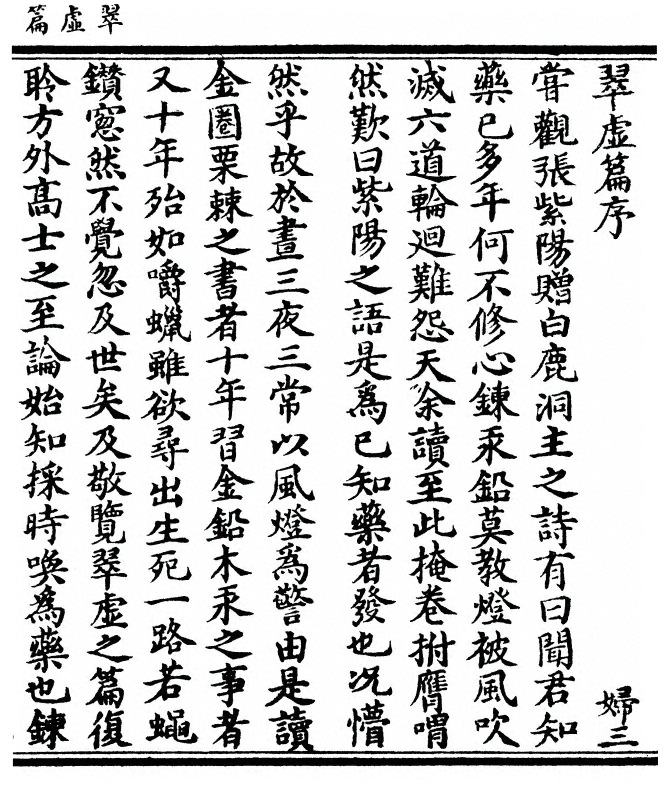 翠虛篇
翠虛篇序
婦三
甞觀張紫陽贈白鹿洞主之詩有曰聞君知
藥已多年何不修心鍊汞鉛莫教燈被風吹
滅六道輪迴難怨天余讀至此掩卷拊膺喟
然歎曰紫陽之語是爲已知藥者發也况懵
然乎故於晝三夜三常以風燈爲警由是讀
金圈栗棘之書者十年習金鉛木汞之事者
又十年殆如嚼蠟雖欲尋出生死一路若蠅
鑽窓然不覺忽及世矣及敬覽翠虛之篇復
聆方外高士之至論始知採時喚爲藥也鍊